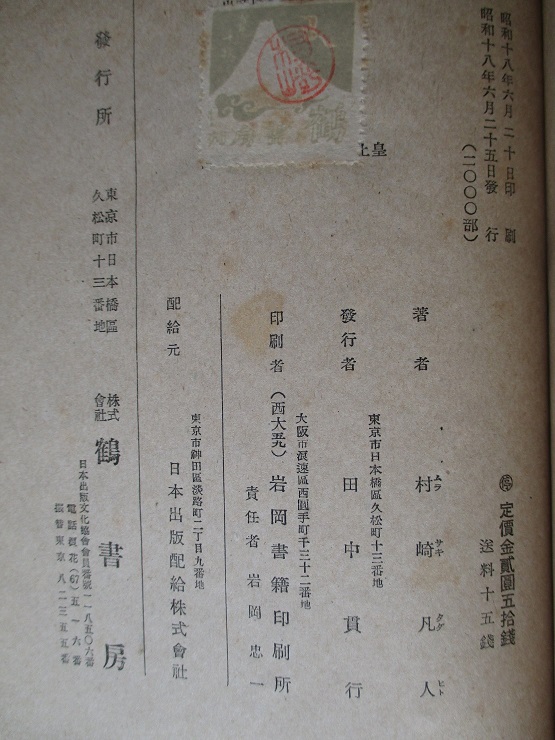 昭和十八年六月二十日印刷
昭和十八年六月二十五日發行
(二〇〇〇部)
定價金貳圓五拾錢
送料十五錢
著者
村崎凡人
ムラ サキ タダ ヒト
東京市日本橋區久松町十三番地
發行者
田中貫行
大阪市浪速區西圓手町千三十二番地
印刷者
(西大
)
岩岡書籍印刷所
責任者 岩岡忠一
配給元
東京市神田區淡路町二丁目九番地
日本出版配給株式會社
發行所
東京市日本橋區
久松町十三番地
株式
會社
鶴書房
日本出版文化協會會員番號一一八五〇六番
電話浪花(67)五一六番
振替東京八二三五五番
鶴